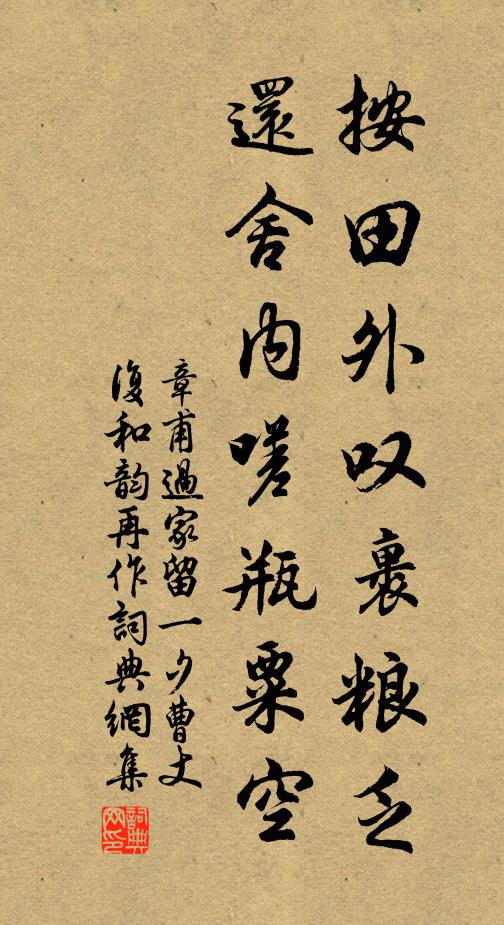 按田外叹裹粮乏
還舍内嗟瓶粟空
章甫過家留一夕曹丈
復和韵再作詞典網集
詞典网印